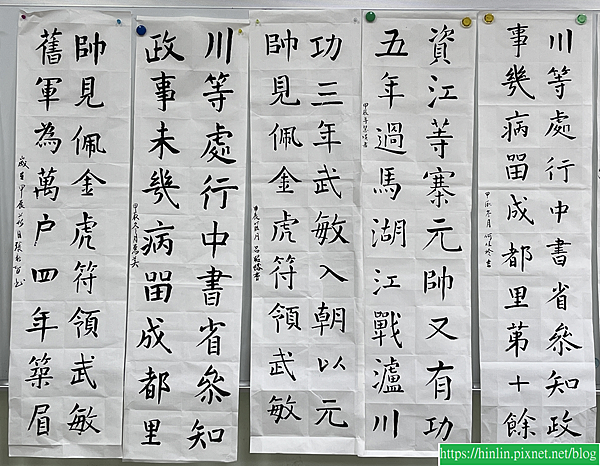 川等處行中書省叅知政
事幾病畱成都里第十餘
甲辰冬月
資江等寨元帥又有功
五年過馬湖江戰瀘川
功三年武敏入朝以元
帥見佩金虎符領武敏
川等處行中書省叅知
政事未幾病畱成都里
甲辰冬月
帥見佩金虎符領武敏
舊軍為萬户四年築眉
歲在甲辰
https://hinlin.pixnet.net/blog